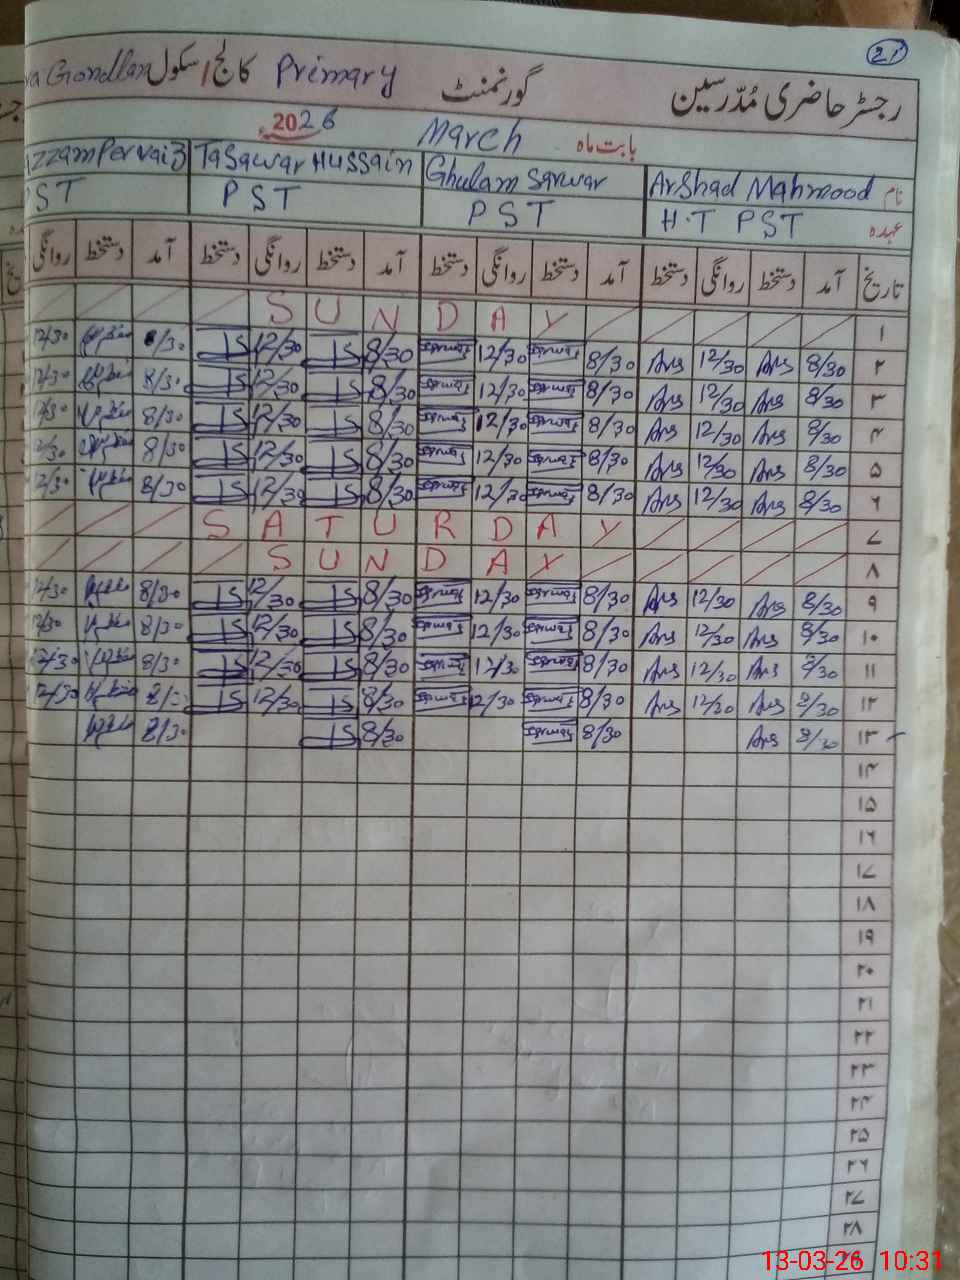 21
رجسٹر حاضری مُدّرسین گورنمنٹ Primary کالج / سکول Gondlan
بابت ماہ March 2026
نام Arshad Mahmood Ghulam Sarwar Tasawar Hussain Pervaiz
عہدہ H.T PST PST PST PST
تاریخ آمد دستخط روانگی دستخط آمد دستخط روانگی دستخط آمد دستخط روانگی دستخط آمد دستخط روانگی
۱ SUNDAY
۲ 8/30 Ars 12/30 Ars 8/30 Sarwar 12/30 Sarwar 8/30 TS 12/30 TS 8/30 12/30
۳ 8/30 Ars 12/30 Ars 8/30 Sarwar 12/30 Sarwar 8/30 TS 12/30 TS 8/30 12/30
۴ 8/30 Ars 12/30 Ars 8/30 Sarwar 12/30 Sarwar 8/30 TS 12/30 TS 8/30 12/30
۵ 8/30 Ars 12/30 Ars 8/30 Sarwar 12/30 Sarwar 8/30 TS 12/30 TS 8/30 12/30
۶ 8/30 Ars 12/30 Ars 8/30 Sarwar 12/30 Sarwar 8/30 TS 12/30 TS 8/30 12/30
۷ SATURDAY
۸ SUNDAY
۹ 8/30 Ars 12/30 Ars 8/30 Sarwar 12/30 Sarwar 8/30 TS 12/30 TS 8/30 12/30
۱۰ 8/30 Ars 12/30 Ars 8/30 Sarwar 12/30 Sarwar 8/30 TS 12/30 TS 8/30 12/30
۱۱ 8/30 Ars 12/30 Ars 8/30 Sarwar 12/30 Sarwar 8/30 TS 12/30 TS 8/30 12/30
۱۲ 8/30 Ars 12/30 Ars 8/30 Sarwar 12/30 Sarwar 8/30 TS 12/30 TS 8/30 12/30
۱۳ 8/30 Ars 8/30 Sarwar 8/30 TS 8/30
۱۴
۱۵
۱۶
۱۷
۱۸
۱۹
۲۰
۲۱
۲۲
۲۳
۲۴
۲۵
۲۶
۲۷
۲۸
۲۹
13-03-26 10:31